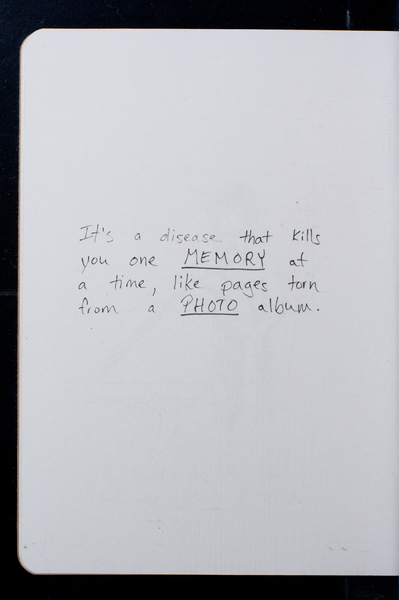 It's a disease that kills
you one MEMORY at
a time, like pages torn
from a PHOTO album.